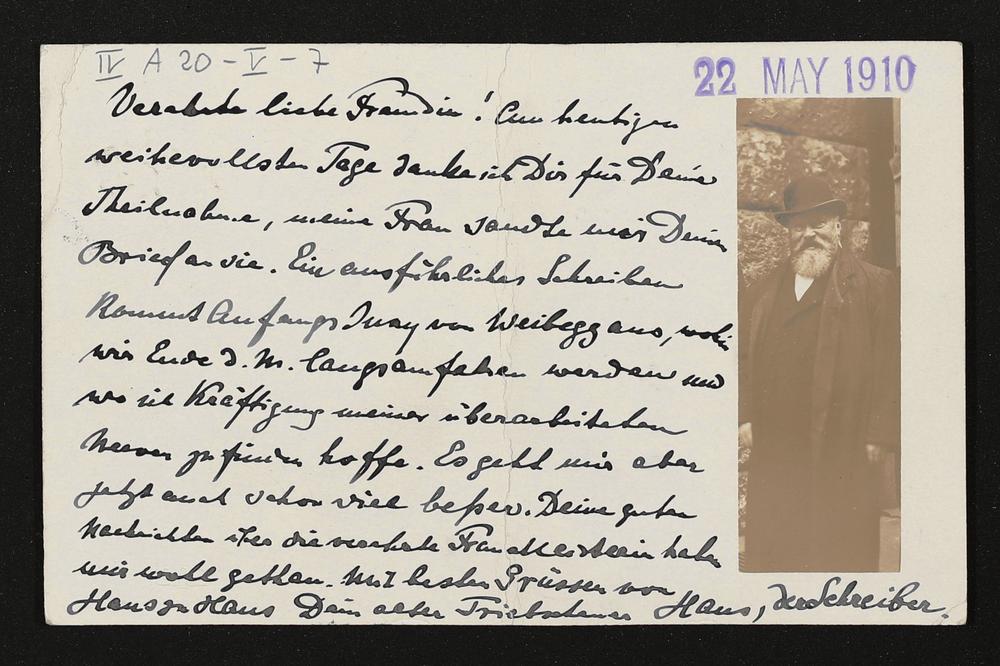 IV A 20 - V - 7
22 MAY 1910
Verehrte liebe Freundin! Am heutigen
weihevollsten Tage danke ich Dir für Deine
Theilnahme, meine Frau sandte mir Deinen
Brief an sie. Ein ausführliches Schreiben
kommt Anfangs Juny von aus, wohin
wir Ende d. M. langsam fahren werden und
wo ich Kräftigung meiner überarbeiteten
Nerven zu finden hoffe. Es geht mir aber
jetzt auch schon viel beßer. Deine guten
Nachrichten über die verehrte Frau Meisterin haben
mir wohl gethan. Mit besten Grüssen von
Haus zu Haus Dein alter Triebschener Hans, der Schreiber.